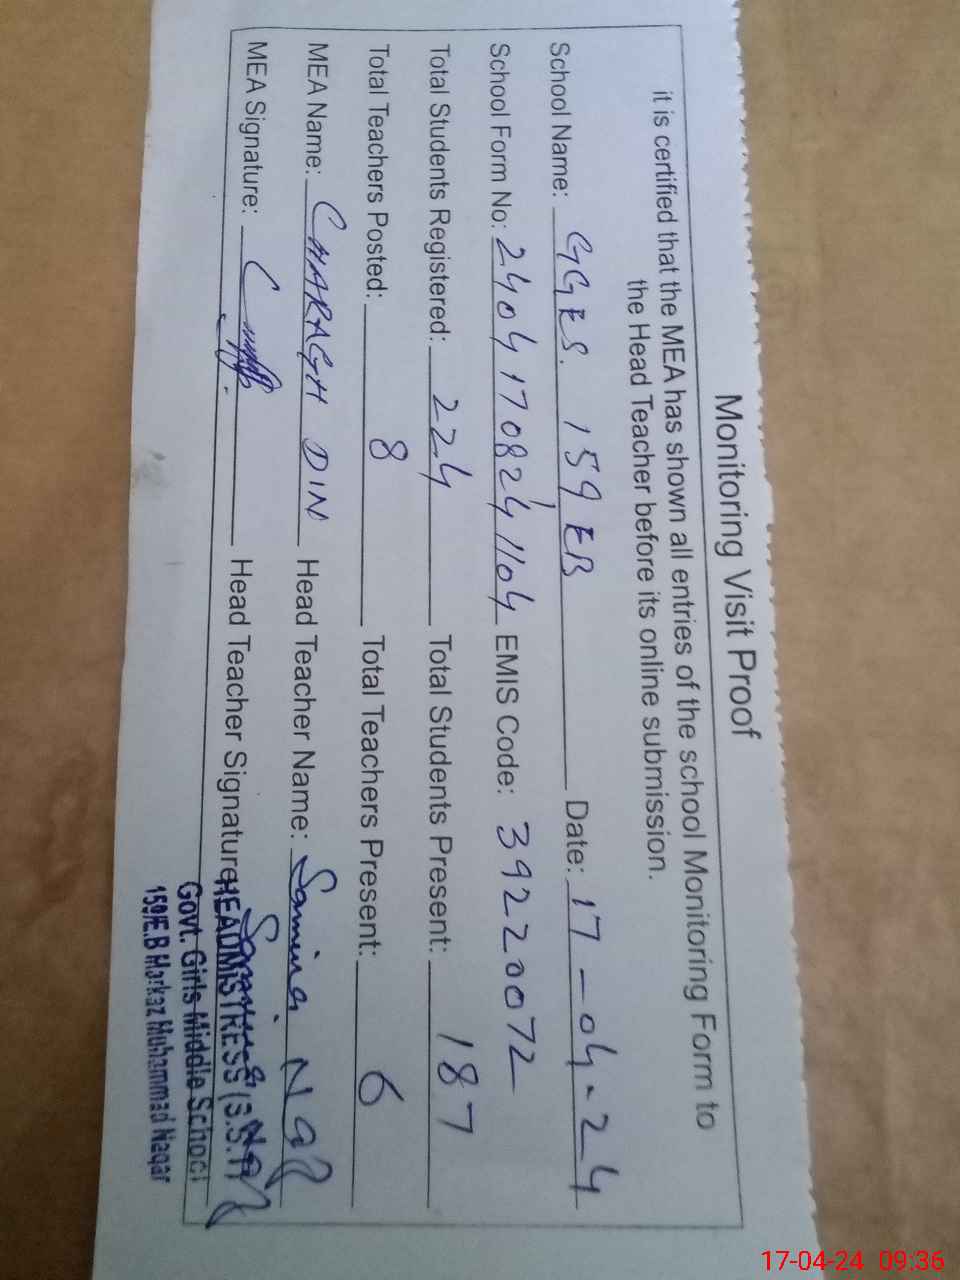 Monitoring Visit Proof
it is certified that the MEA has shown all entries of the school Monitoring Form to
the Head Teacher before its online submission.
School Name: GGES. 159 EB Date: 17-04-24
School Form No: 24041708241104 EMIS Code: 39220072
Total Students Registered: 224 Total Students Present: 187
Total Teachers Posted: 8 Total Teachers Present: 6
MEA Name: CHARAGH DIN Head Teacher Name: Samina Naz
MEA Signature: Head Teacher Signature: Samina Naz
HEADMISTRESS (S.S.T)
Govt. Girls Middle School
159/E.B Markaz Muhammad Nagar
17-04-24 09:36